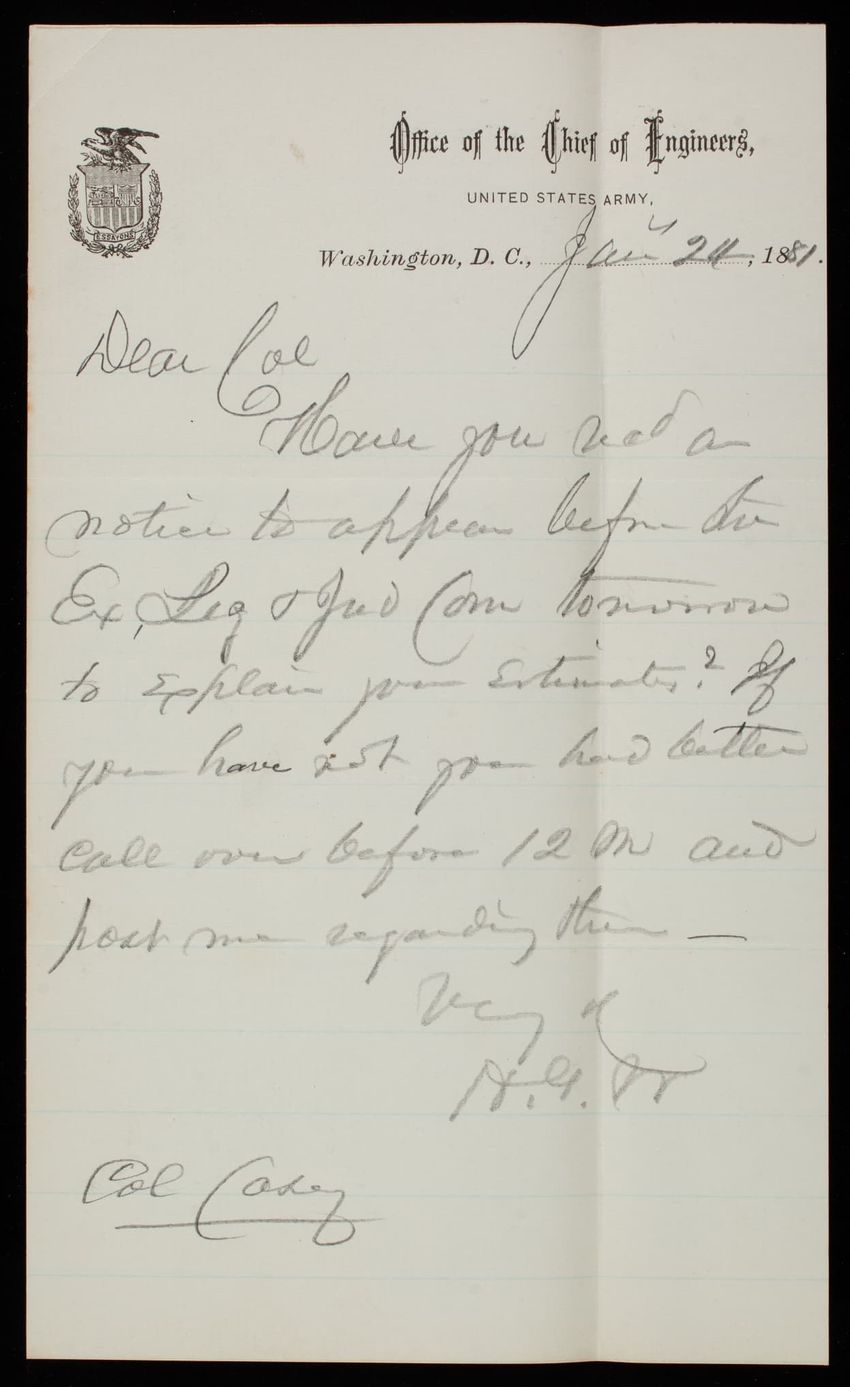 Office of the Chief of Engineers,
UNITED STATES ARMY,
Washington, D. C., Jany 24, 1881.
ESSAYONS
Dear Col
Have you rec'd a
notice to appear before the
Ex, Leg & Jud Com tomorrow
to explain your estimates? If
you have not you had better
call over before 12 M and
post me regarding them —
Very
H. G. W
Col Casey